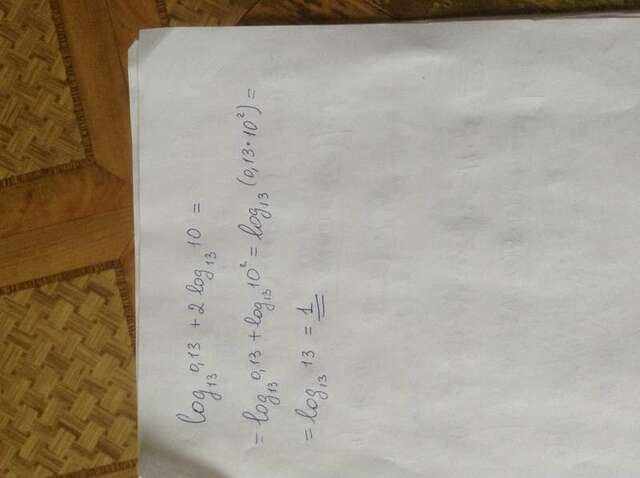 log₁₃ 0,13 + 2 log₁₃ 10 =
= log₁₃ 0,13 + log₁₃ 10² = log₁₃ (0,13 · 10²) =
= log₁₃ 13 = 1